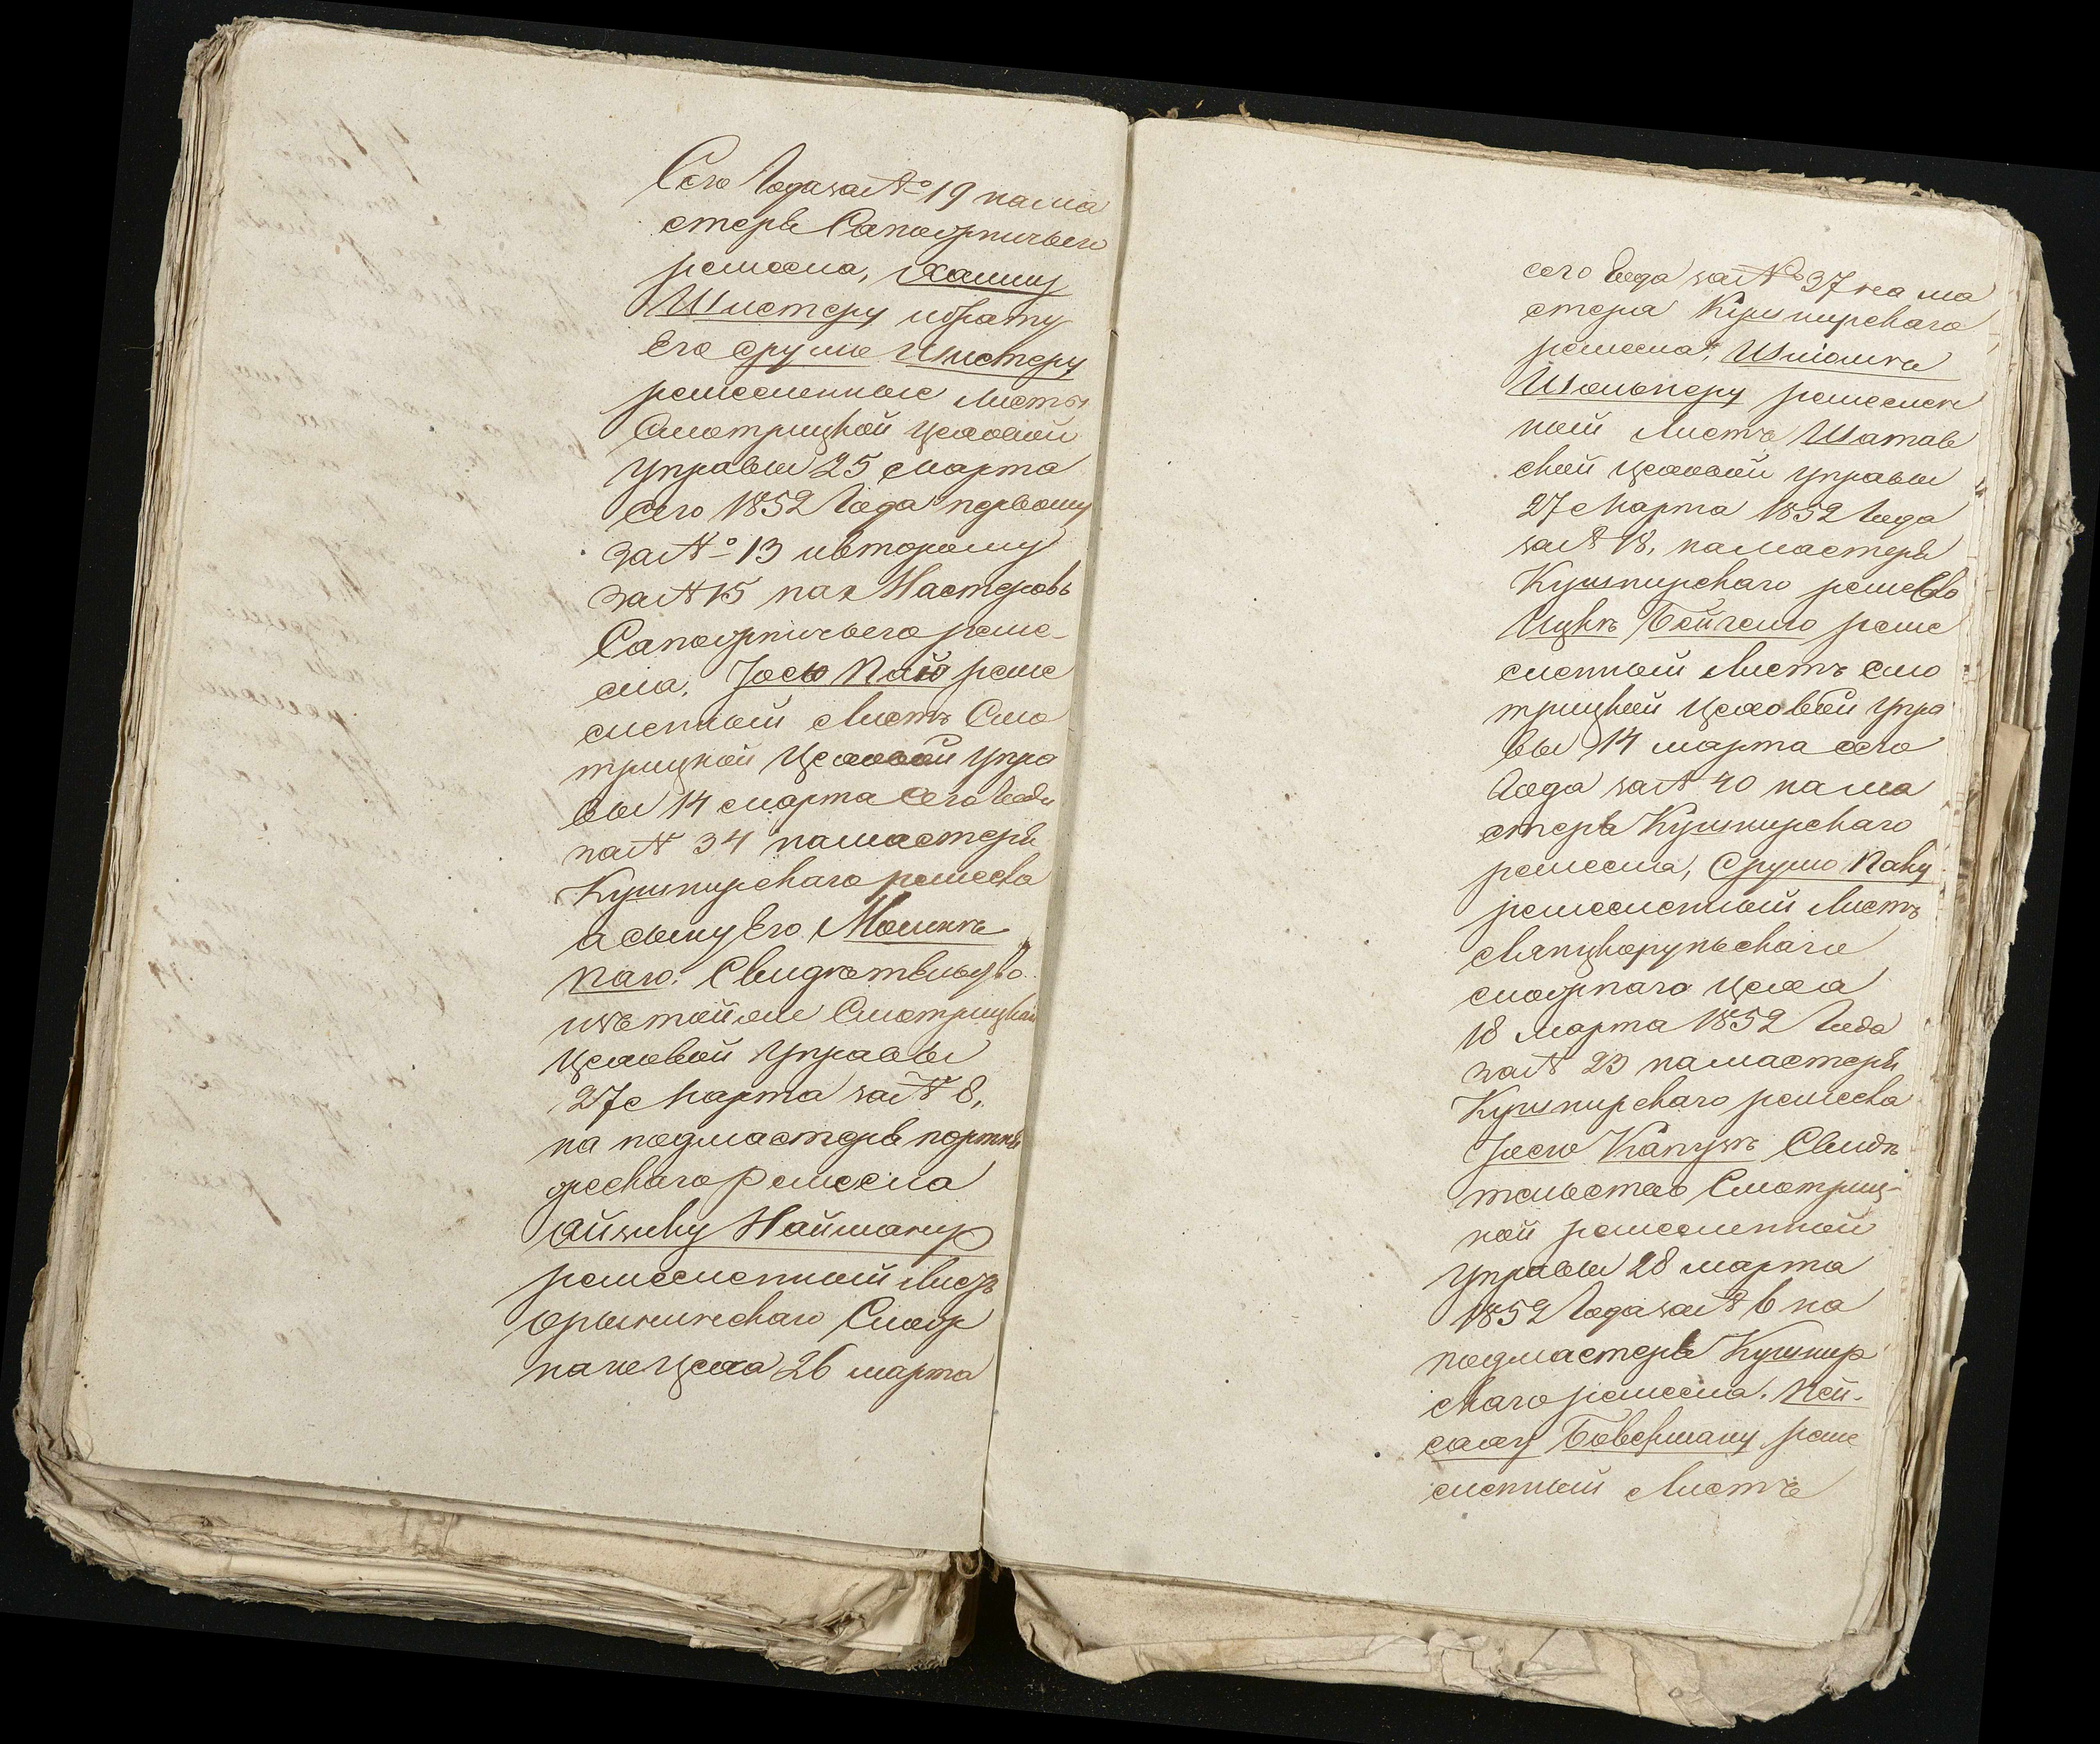 Сего Года за № 19 на ма
стера Сапожничьего
ремесла, Хаиму
Шмстеру и брату
Его Срулю Шмстеру
ремесленные Листы
Смотрицкой Цеховой
Управы 25 Марта
сего 1852 Года первому
за № 13 и второму
за № 15 на Мастеровъ
Сапожничьего реме-
сла, Іосю Паю реме
сленный Листъ Смо
трицкой Цеховой Упра
вы 14 Марта Сего Года
на № 34 на мастера
Кушнирскаго ремесла
а сыну Его Мошкѣ
Паю. Свидѣтельство
изъ той же Смотрицкой
Цеховой Управы
27 Марта за № 8,
на подмастера портня
жескаго Ремесла
Айзику Найману
ремесленный Листъ
Орынинскаго Сбор
наго Цеха 26 марта
сего Года за № 37 на ма
стера Кушнирскаго
ремесла, Шмомке
Шольнеру ремеслен
ный Листъ Шатав
ской Цеховой Управы
27 Марта 1852 Года
за № 18, на мастера
Кушнирскаго ремесло
Ицкѣ Бейгелю реме
сленный Листъ Смо
трицкой Цеховой Упра
вы 14 марта сего
Года за № 40 на ма
стера Кушнирскаго
ремесла, Срулю Паку
ремесленный Листъ
Лянцкорунскаго
сборнаго Цеха
18 Марта 1852 Года
за № 23 на мастера
Кушнирскаго ремесла
Іосю Капузѣ Свидѣ
тельство Смотриц-
кой ремесленной
Управы 28 марта
1852 Года за № 6 на
подмастера Кушнир
скаго ремесла. Пей-
саху Боверману реме
сленный Листъ